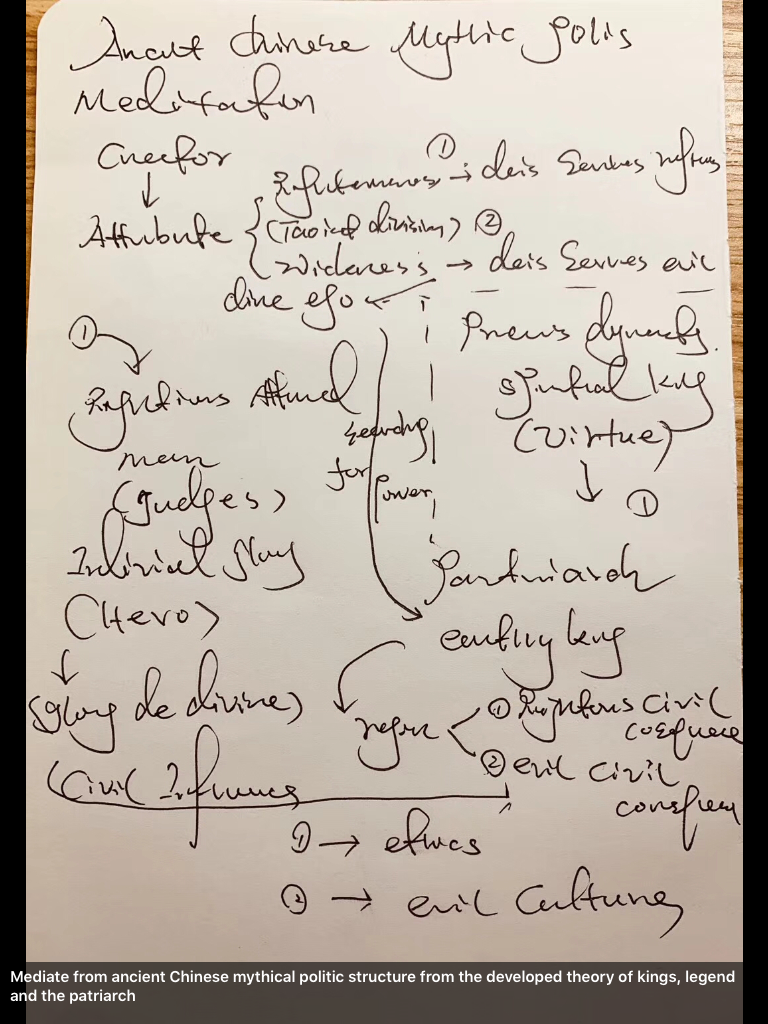 Ancient Chinese Mythic Polis
Meditation
Creator
Attribute
① → deis Serves
(Taoist division) ②
Wickedness → deis Serves evil
ego
①
Previous dynasty
Spiritual king
(Virtue)
①
Righteous
men
(Judges)
searching
for
Power
Glory
(Hero)
Patriarch
earthly king
(Glory de divine)
① Righteous civil
② evil civil
(Civil Influence
① → ethics
② → evil Culture
Mediate from ancient Chinese mythical politic structure from the developed theory of kings, legend
and the patriarch